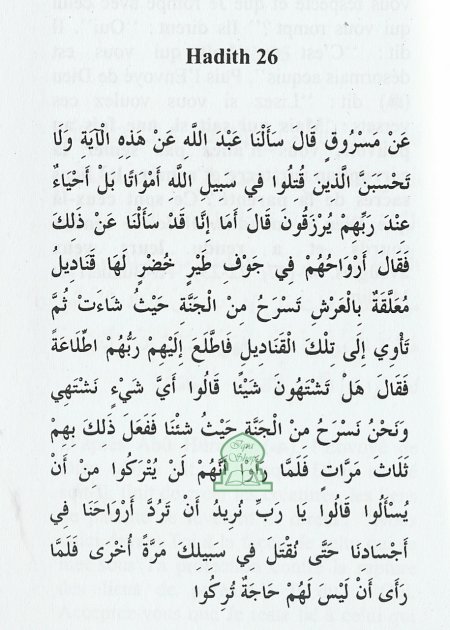 Hadith 26
عَنْ مَسْرُوقٍ قَالَ سَأَلْنَا عَبْدَ اللَّهِ عَنْ هَذِهِ الْآيَةِ وَلَا
تَحْسَبَنَّ الَّذِينَ قُتِلُوا فِي سَبِيلِ اللَّهِ أَمْوَاتًا بَلْ أَحْيَاءٌ
عِنْدَ رَبِّهِمْ يُرْزَقُونَ قَالَ أَمَا إِنَّا قَدْ سَأَلْنَا عَنْ ذَلِكَ
فَقَالَ أَرْوَاحُهُمْ فِي جَوْفِ طَيْرٍ خُضْرٍ لَهَا قَنَادِيلُ
مُعَلَّقَةٌ بِالْعَرْشِ تَسْرَحُ مِنْ الْجَنَّةِ حَيْثُ شَاءَتْ ثُمَّ
تَأْوِي إِلَى تِلْكَ الْقَنَادِيلِ فَاطَّلَعَ إِلَيْهِمْ رَبُّهُمْ اطِّلَاعَةً
فَقَالَ هَلْ تَشْتَهُونَ شَيْئًا قَالُوا أَيَّ شَيْءٍ نَشْتَهِي
وَنَحْنُ نَسْرَحُ مِنْ الْجَنَّةِ حَيْثُ شِئْنَا فَفَعَلَ ذَلِكَ بِهِمْ
ثَلَاثَ مَرَّاتٍ فَلَمَّا رَأَوْا أَنَّهُمْ لَنْ يُتْرَكُوا مِنْ أَنْ
يُسْأَلُوا قَالُوا يَا رَبِّ نُرِيدُ أَنْ تَرُدَّ أَرْوَاحَنَا فِي
أَجْسَادِنَا حَتَّى نُقْتَلَ فِي سَبِيلِكَ مَرَّةً أُخْرَى فَلَمَّا
رَأَى أَنْ لَيْسَ لَهُمْ حَاجَةٌ تُرِكُوا